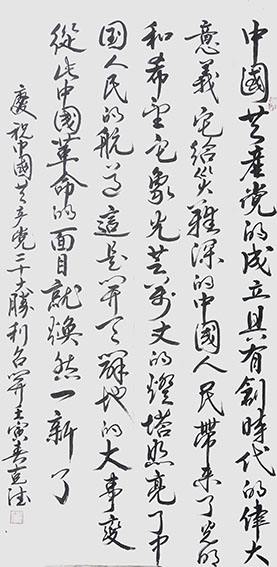 中國共產黨的成立具有創時代的偉大
意義它給災難深的中國人民帶来了光明
和希望它象光芒萬丈的燈塔照亮了中
國人民的航道這是開天闢地的大事變
從此中國革命的面目就焕然一新了
慶祝中國共產黨二十大勝利召開壬寅春